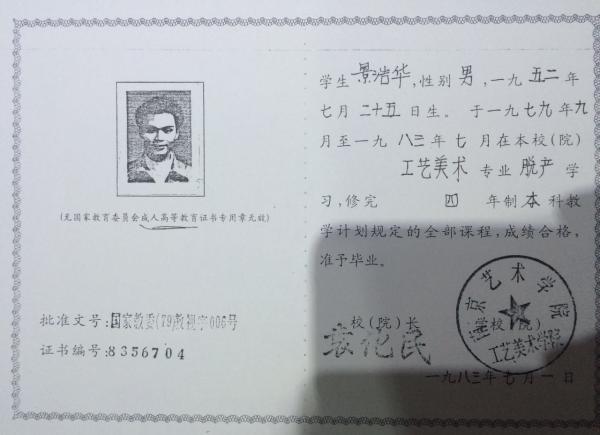 (无国家教育委员会成人高等教育证书专用章无效)
批准文号:国家教委(79)教视字006号
证书编号:8356704
学生 景浩华,性别 男,一九五二年
七月二十五日生。于一九七九年九
月至一九八三年七月在本校(院)
工艺美术 专业 脱产 学
习,修完 四 年制 本 科教
学计划规定的全部课程,成绩合格,
准予毕业。
校(院)长
学校(院)
京艺术学院
工艺美术学院
一九八三年七月一日